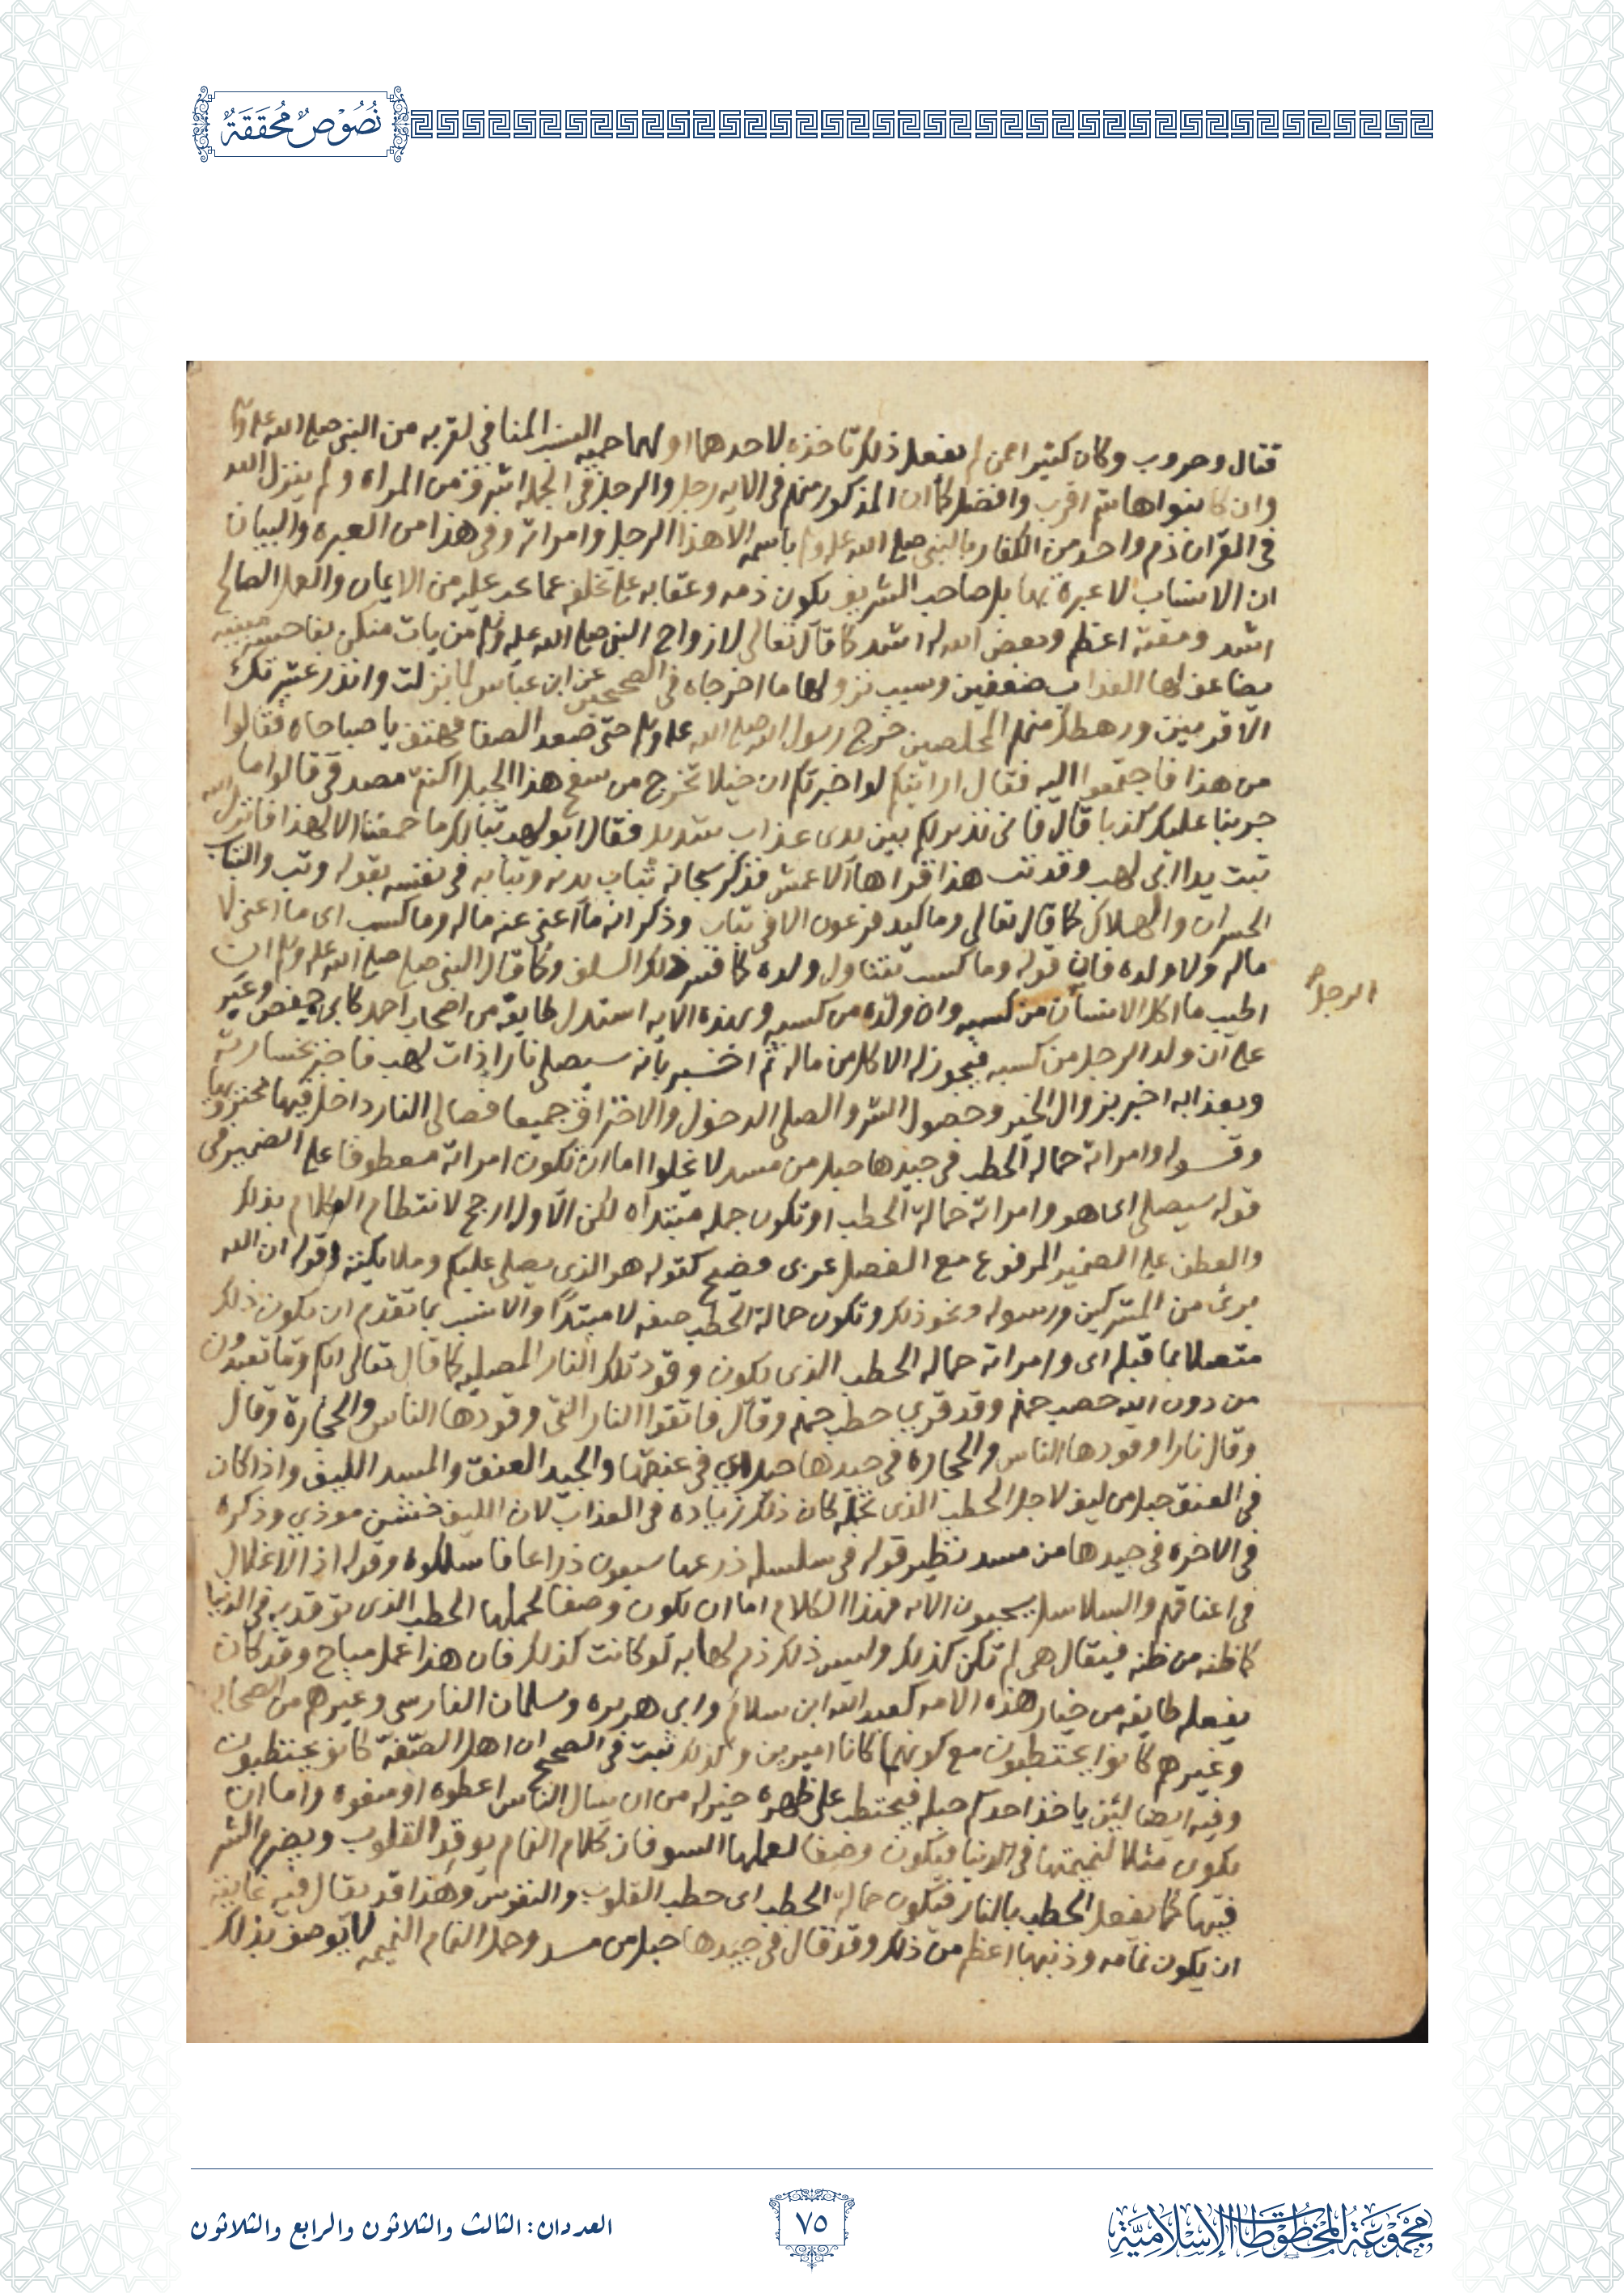 نُصُوْصٌ مُحَقَّقَةٌ
قتال وحروب وكان كثير امن لم يفعل ذلك تاخذه لاحدهما او لهما حميه النسب المنافى لقربه من النبى صلى الله عليه وسلم
وان كا بنوا هاشم اقرب وافضل كما ان المذكور منهم فى الايه رجل والرجل فى الجمله اشرف من المراه ولم ينزل الله
فى القران ذم واحد من الكفار بالنبى صلى الله عليه وسلم باسمه الا هذا الرجل وامراته وفى هذا من العبره والبيان
ان الانساب لا عبرة بها بل صاحب الشريف يكون ذمه وعقابه على تخلفه عما يجب عليه من الايمان والعمل الصالح
اشد ومقته اعظم وبغض الله له اشد كما قال تعالى لازواج النبى صلى الله عليه وسلم من يات منكن بفاحشة مبينه
يضاعف لها العذاب ضعفين وسبب نزولها ما اخرجاه فى الصحيحين عن ابن عباس لما نزلت وانذر عشيرتك
الاقربين ورهطك منهم المخلصين خرج رسول الله صلى الله عليه وسلم حتى صعد الصفا فهتف يا صباحاه فقالوا
من هذا فاجتمعوا اليه فقال ارايتكم لو اخبرتكم ان خيلا تخرج من سفح هذا الجبل اكنتم مصدقى قالوا ما
جربنا عليك كذبا قال فانى نذير لكم بين يدى عذاب شديد فقال ابو لهب تبا لك ما جمعتنا الا لهذا فانزل الله
تبت يدا ابى لهب وقد تب هذا قراها الاعمش فذكر سبحانه تباب يديه وتبابه فى نفسه بقوله وتب والتباب
الخسران والهلاك كما قال تعالى وما كيد فرعون الا فى تباب وذكر انه ما اغنى عنه ماله وما كسب اى ما اغنى لا
ماله ولا ولده فان قوله وما كسب يتناول ولده كما فسر ذلك السلف وكما قال النبى صلى صلى الله عليه وسلم ان
اطيب ما اكل الانسان من كسبه وان ولده من كسبه وبهذه الايه استدل طايفة من اصحاب احمد كابى حفص وغير
الرجل
على ان ولد الرجل من كسبه فيجوز له الاكل من ماله ثم اخبر بانه سيصلى نارا ذات لهب فاخبر بخسارته
وبعذابه اخبر بزوال الخير وحصول الشر والصلى الدخول والاحتراق جميعا فصالى النار داخل فيها محترق بها
وقوله وامراته حماله الحطب فى جيدها حبل من مسد لا يخلوا اما ان تكون امراته معطوفا على الضمير فى
قوله سيصلى اى هو وامراته حمالة الحطب او تكون جمله مبتداه لكن الاول ارجح لانتظام الكلام بذلك
والعطف على الضمير المرفوع مع الفصل عربى فصيح كقوله هو الذى يصلى عليكم وملائكته وقوله ان الله
برئ من المشركين ورسوله ونحو ذلك وتكون حمالة الحطب صفه لا مبتدأ والانسب بما تقدم ان يكون ذلك
متصلا بما قبله اى وامراته حماله الحطب الذى يكون وقود تلك النار المصليه كما قال تعالى انكم وما تعبدون
من دون الله حصب جهنم وقد قرى حطب جهنم وقال فاتقوا النار التى وقودها الناس والحجارة وقال
وقال نارا وقودها الناس والحجاره فى جيدها حبل اى فى عنقها والجيد العنق والمسد الليف واذا كان
فى العنق حبل من ليف لاجل الحطب الذى تحمله كان ذلك زياده فى العذاب لان الليف خشن موذى وذكره
فى الاخره فى جيدها من مسد نظير قوله فى سلسله ذرعها سبعون ذراعا فاسلكوه وقوله اذ الاغلال
فى اعناقهم والسلاسل يسحبون الايه فهذا الكلام اما ان يكون وصفا لحملها الحطب الذى توقد به فى الدنيا
كما ظنه من ظنه فيقال هى لم تكن كذلك وليس ذلك ذم لها به لو كانت كذلك فان هذا عمل مباح وقد كان
يفعله طايفه من خيار هذه الامه كعبد الله ابن سلام وابى هريره وسلمان الفارسى وغيرهم من الصحابه
وغيرهم كانوا يحتطبون مع كونهما كانا اميرين وكذلك ثبت فى الصحيح ان اهل الصفة كانو يحتطبون
وفيه ايضا لئن ياخذ احدكم حبله فيحتطب على ظهره خير له من ان يسال الناس اعطوه او منعوه واما ان
يكون مثلا لنميمتها فى الدنيا فيكون وصفا لعملها السو فان كلام النمام يوقد القلوب ويضرم الشر
فيها كما يفعل الحطب بالنار فيكون حمالة الحطب اى حطب القلوب والنفوس وهذا قد يقال فيه غايته
ان يكون نمامه وذنبها اعظم من ذلك وقد قال فى جيدها حبل من مسد وحمل النمام النميمه لا يوصف بذلك
مَجْمُوعَةُ المَخْطُوطَاتِ الإِسْلَامِيَّةِ
٧٥
العددان: الثالث والثلاثون والرابع والثلاثون